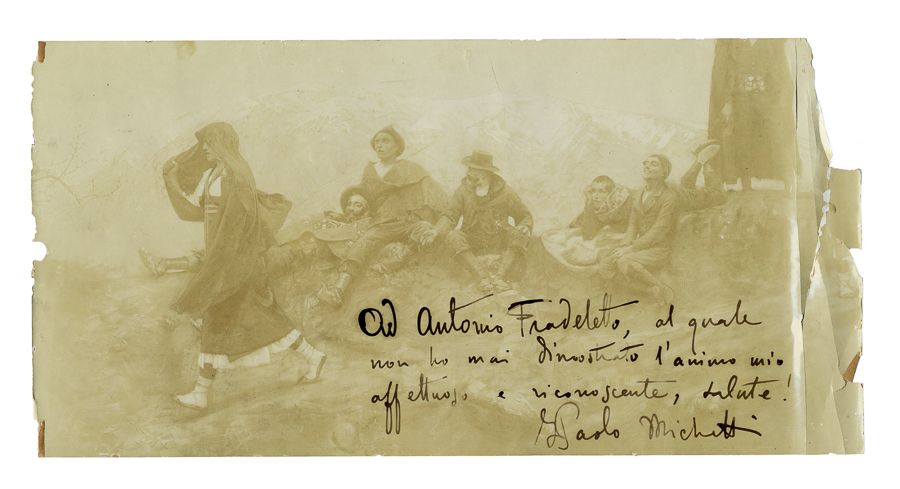 Ad Antonio Fradeletto, al quale
non ho mai dimostrato l'animo mio
affettuoso e riconoscente, salute!
F Paolo Michetti